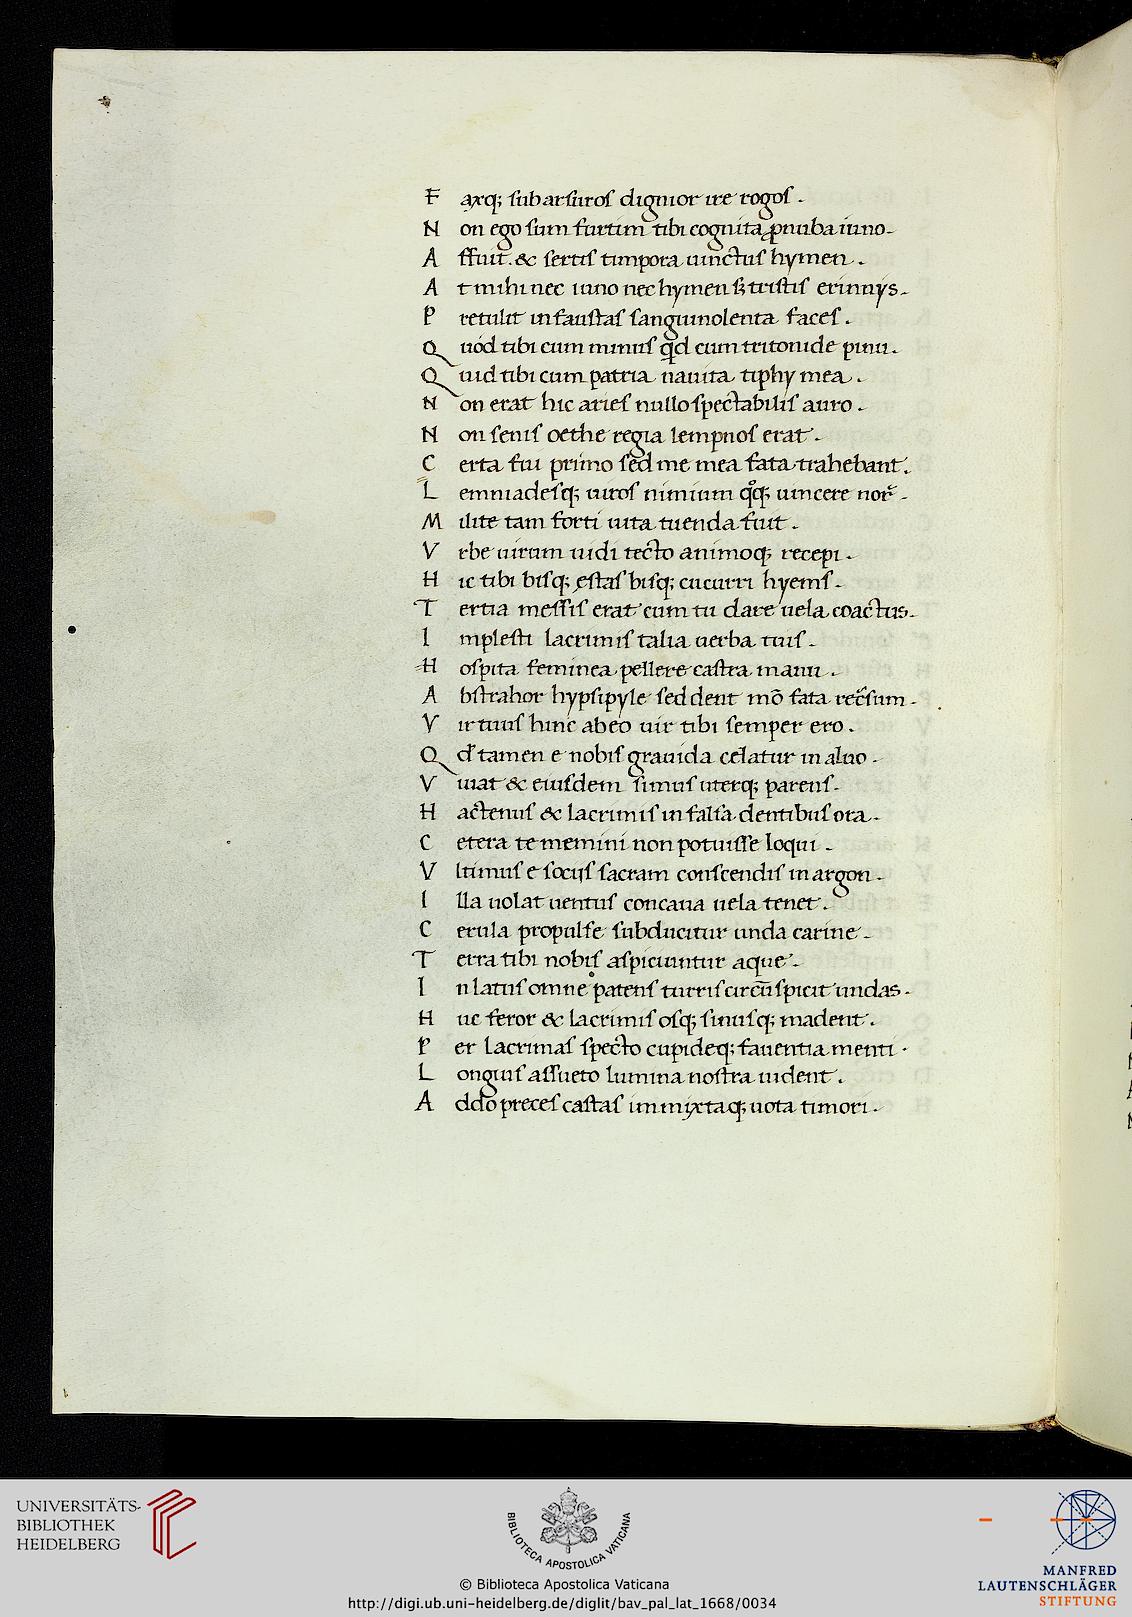 F axq; sub arsuros dignior ire rogos .
N on ego sum furtim tibi cognita ꝓnuba iuno .
A ffuit . & sertis timpora uinctus hymen .
A t mihi nec iuno nec hymen sꝫ tristis erinnys .
P retulit infaustas sanguinolenta faces .
Q uod tibi cum minus qͥd cum tritonide pinu .
Q uid tibi cum patria nauita tiphy mea .
N on erat hic aries nullo spectabilis auro .
N on senis oethe regia lempnos erat .
C erta fui primo sed me mea fata trahebant .
L emniadesq; uiros nimium qͦq; uincere nor̃ .
M ilite tam forti uita tuenda fuit .
V rbe uirum uidi tecto animoq; recepi .
H ic tibi bisq; ęstas bisq; cucurri hyems .
T ertia messis erat cum tu dare uela coactus .
I mplesti lacrimis talia uerba tuis .
H ospita feminea pellere castra manu .
A bstrahor hypsipyle sed dent mō fata rec̃sum .
V ir tuus hinc abeo uir tibi semper ero .
Q đ tamen e nobis grauida celatur in aluo .
V iuat & eiusdem simus uterq; parens .
H actenus & lacrimis in falsa dentibus ora .
C etera te memini non potuisse loqui .
V ltimus e socijs sacram conscendis in argon .
I lla uolat uentus concaua uela tenet .
C erula propulse subducitur unda carine .
T erra tibi nobis aspiciuntur aque .
I n latus omne patens turris circũspicit undas .
H uc feror & lacrimis osq; sinusq; madent .
P er lacrimas specto cupideq; fauentia menti .
L ongius assueto lumina nostra uident .
A ddo preces castas immixtaq; uota timori .
UNIVERSITÄTS-
BIBLIOTHEK
HEIDELBERG
BIBLIOTECA APOSTOLICA VATICANA
© Biblioteca Apostolica Vaticana
http://digi.ub.uni-heidelberg.de/diglit/bav_pal_lat_1668/0034
MANFRED
LAUTENSCHLÄGER
STIFTUNG